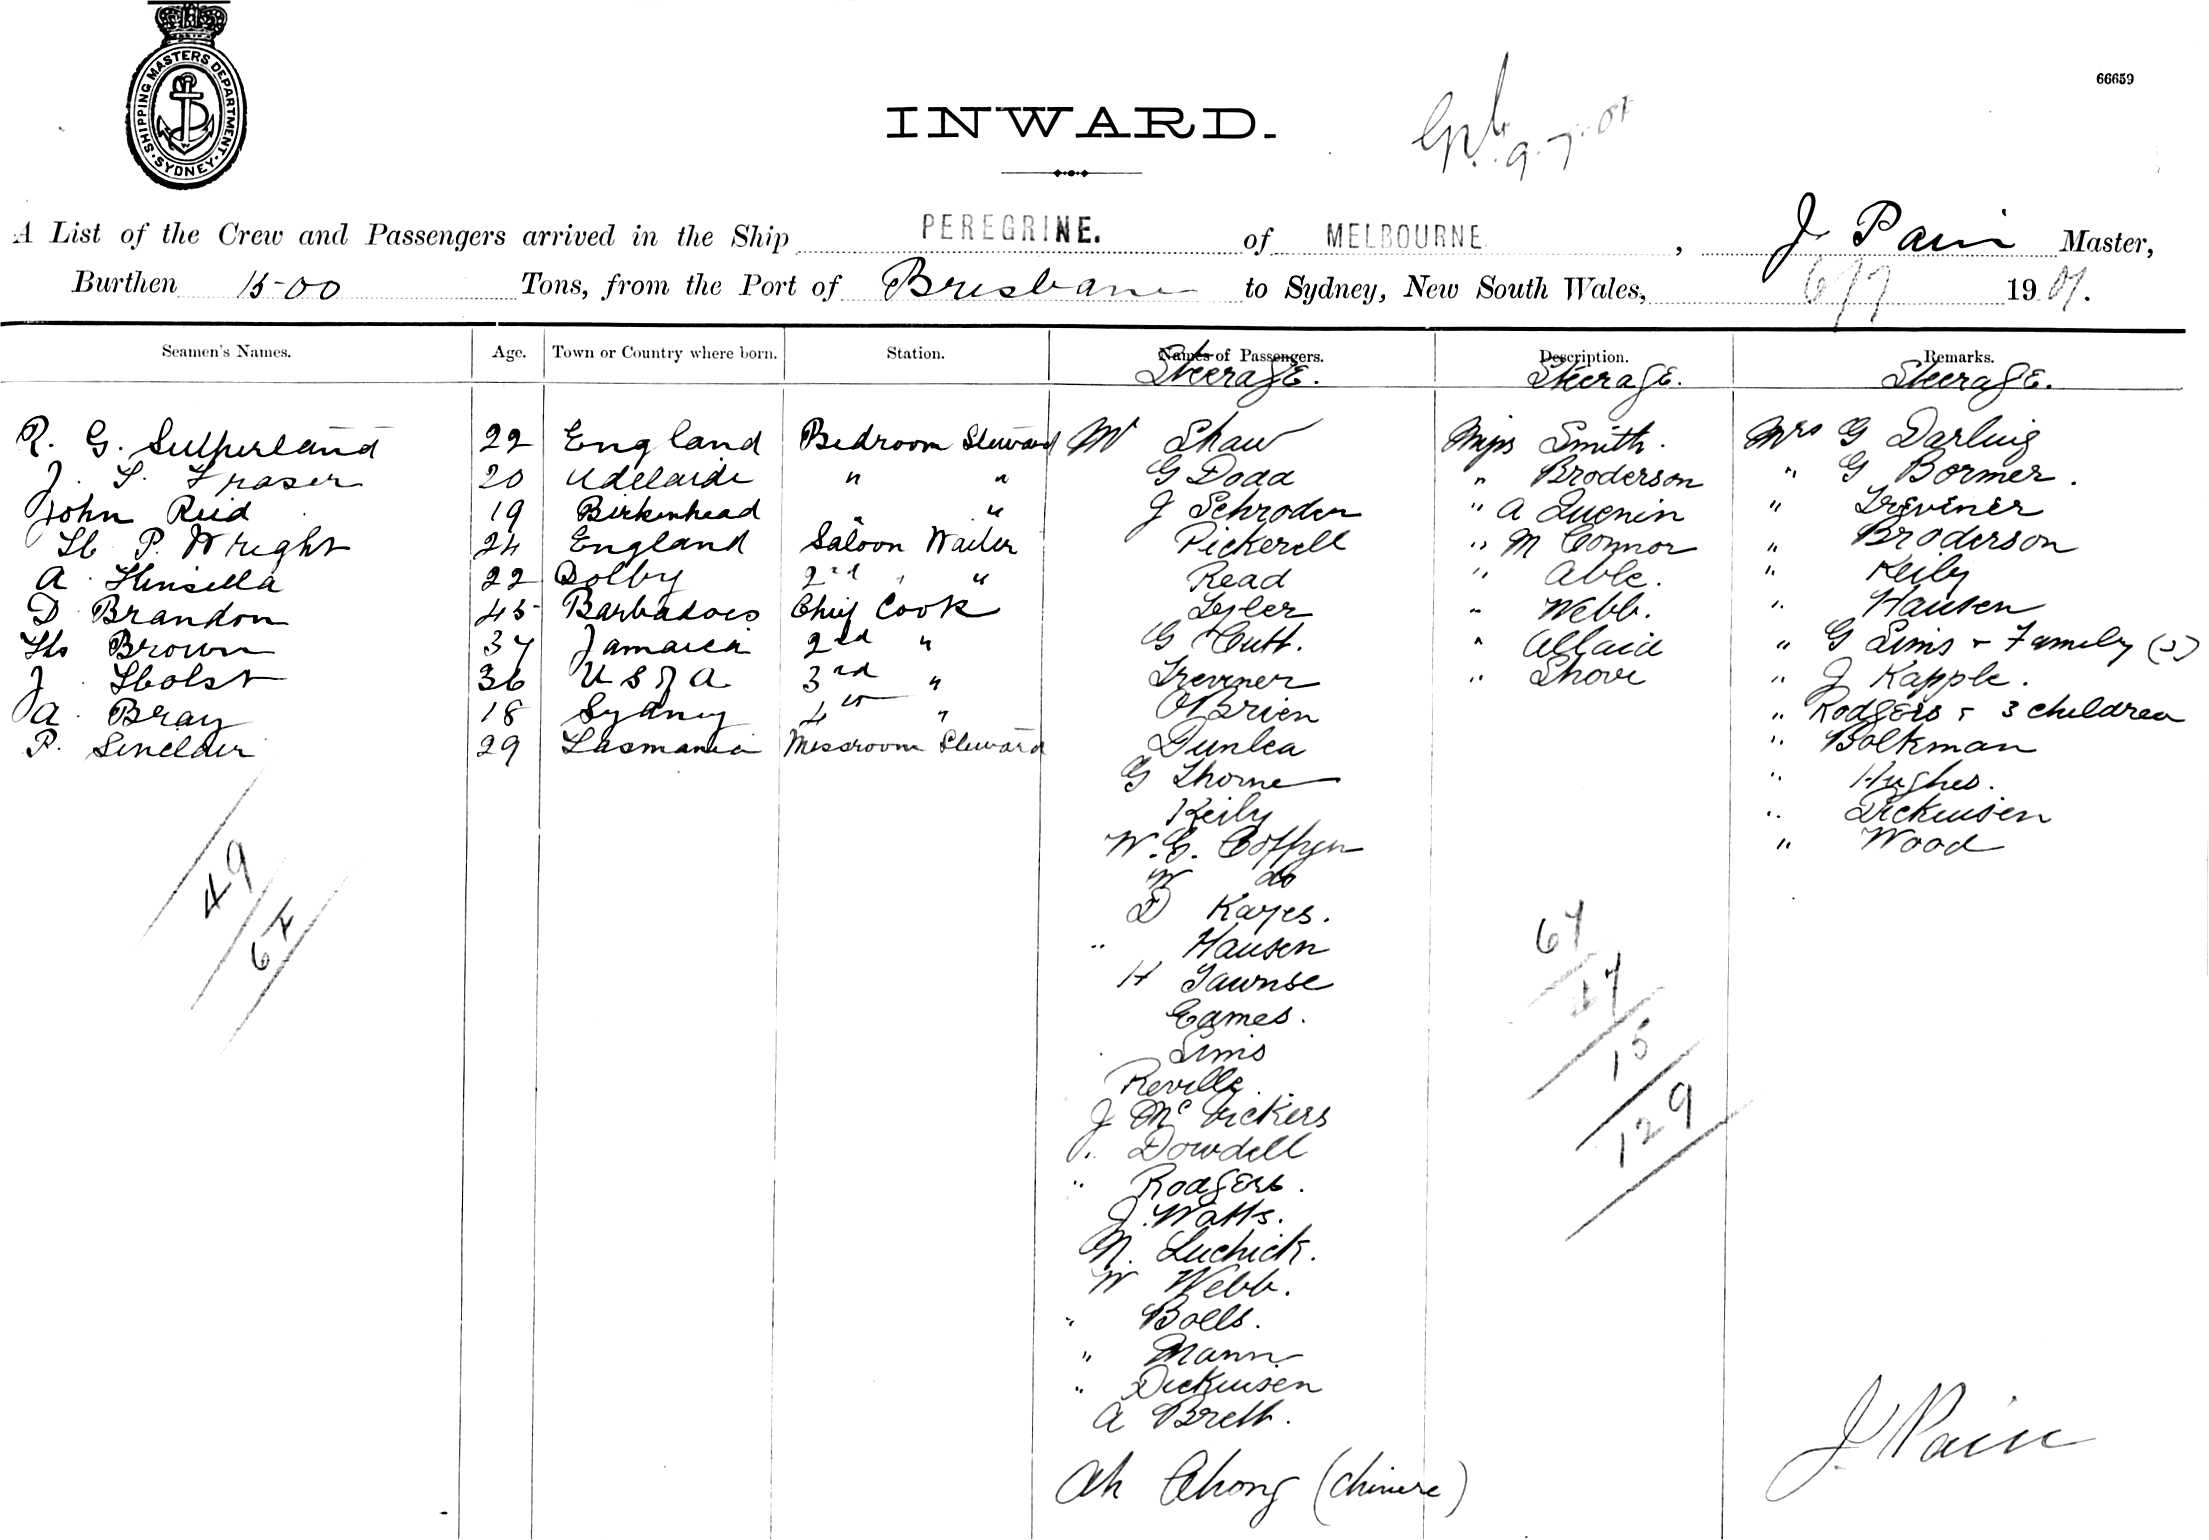 SHIPPING MASTERS DEPARTMENT. SYDNEY
66659
INWARD.
9.7.01
A List of the Crew and Passengers arrived in the Ship PEREGRINE. of MELBOURNE, J Pain Master,
Burthen 1500 Tons, from the Port of Brisbane to Sydney, New South Wales, 6/7 1901.
Seamen's Names. Age. Town or Country where born. Station. Names of Passengers. Description. Remarks.
Steerage. Steerage. Steerage.
R. G. Sutherland 22 England Bedroom Steward Mr Shaw Miss Smith. Mrs G Darling
J. S. Fraser 20 Adelaide " " G Dodd " Broderson " G Bormer.
John Reid 19 Birkenhead " " J Schroder " A Quenin " Trevener
H P. Wright 24 England Saloon Waiter Pickerell " M Connor " Broderson
A. Hinsella 22 Dolby 2nd " " Read " Able. " Keily
D Brandon 45 Barbadoes Chief Cook Lyler " Webb. " Hansen
Ths Brown 37 Jamaica 2nd " G Cutt. " Allaid " G Sims & Family (3)
J Holst 36 U S of A 3rd " Trevener " Shove " J Kapple.
A. Bray 18 Sydney 4th " O'Brien " Rodgers & 3 children
P. Sinclair 29 Tasmania Messroom Steward Dunlea " Bolkman
G Thorne " Hughes.
Keily " Dickinsen
W. G. Coffyn " Wood
W do
49
D Kayes.
67
64
" Hansen
H Tawnse
47
Eames.
Sims
15
Reville.
J McVickers
129
" Dowdell
" Rodgers.
J. Watts.
M. Luchick.
W Webb.
" Bolls.
" Mann
" Dickinsen
A Brett.
J. Pain
Ah Chong (Chinese)